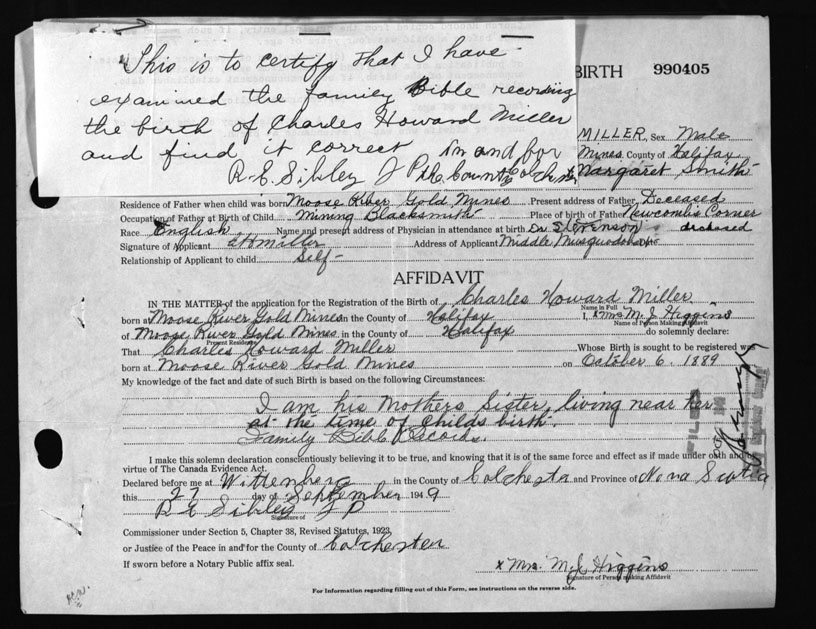 "This is to certify that I have
examined the family Bible recording
the birth of Charles Howard Miller
and find it correct in and for
R. E. Sibley J P County Colchester
BIRTH 990405
MILLER, Sex Male
Mines County of Halifax
Margaret Smith
Residence of Father when child was born Moose River Gold Mines Present address of Father Deceased
Occupation of Father at Birth of Child Mining Blacksmith Place of birth of Father Newcombs Corner
Race English Name and present address of Physician in attendance at birth Dr. Stevenson deceased
Signature of Applicant C H Miller Address of Applicant Middle Musquodoboit
Relationship of Applicant to child Self
AFFIDAVIT
IN THE MATTER of the application for the Registration of the Birth of Charles Howard Miller
Name in Full
born at Moose River Gold Mines in the County of Halifax I, x Mrs M. J. Higgins
Name of Person Making Affidavit
of Moose River Gold Mines in the County of Halifax do solemnly declare:
Present Residence
That Charles Howard Miller Whose Birth is sought to be registered was
born at Moose River Gold Mines on October 6. 1889
My knowledge of the fact and date of such Birth is based on the following Circumstances:
I am his Mothers Sister, living near her
at the time of childs birth.
Family Bible Records.
I make this solemn declaration conscientiously believing it to be true, and knowing that it is of the same force and effect as if made under oath and by
virtue of The Canada Evidence Act.
Declared before me at Wittenberg in the County of Colchester and Province of Nova Scotia
this 27 day of September 1949
R E Sibley J P
Signature of
Commissioner under Section 5, Chapter 38, Revised Statutes, 1923,
or Justice of the Peace in and for the County of Colchester
If sworn before a Notary Public affix seal.
x Mrs. M. J. Higgins
Signature of Person making Affidavit
For Information regarding filling out of this Form, see instructions on the reverse side.
FILED IN